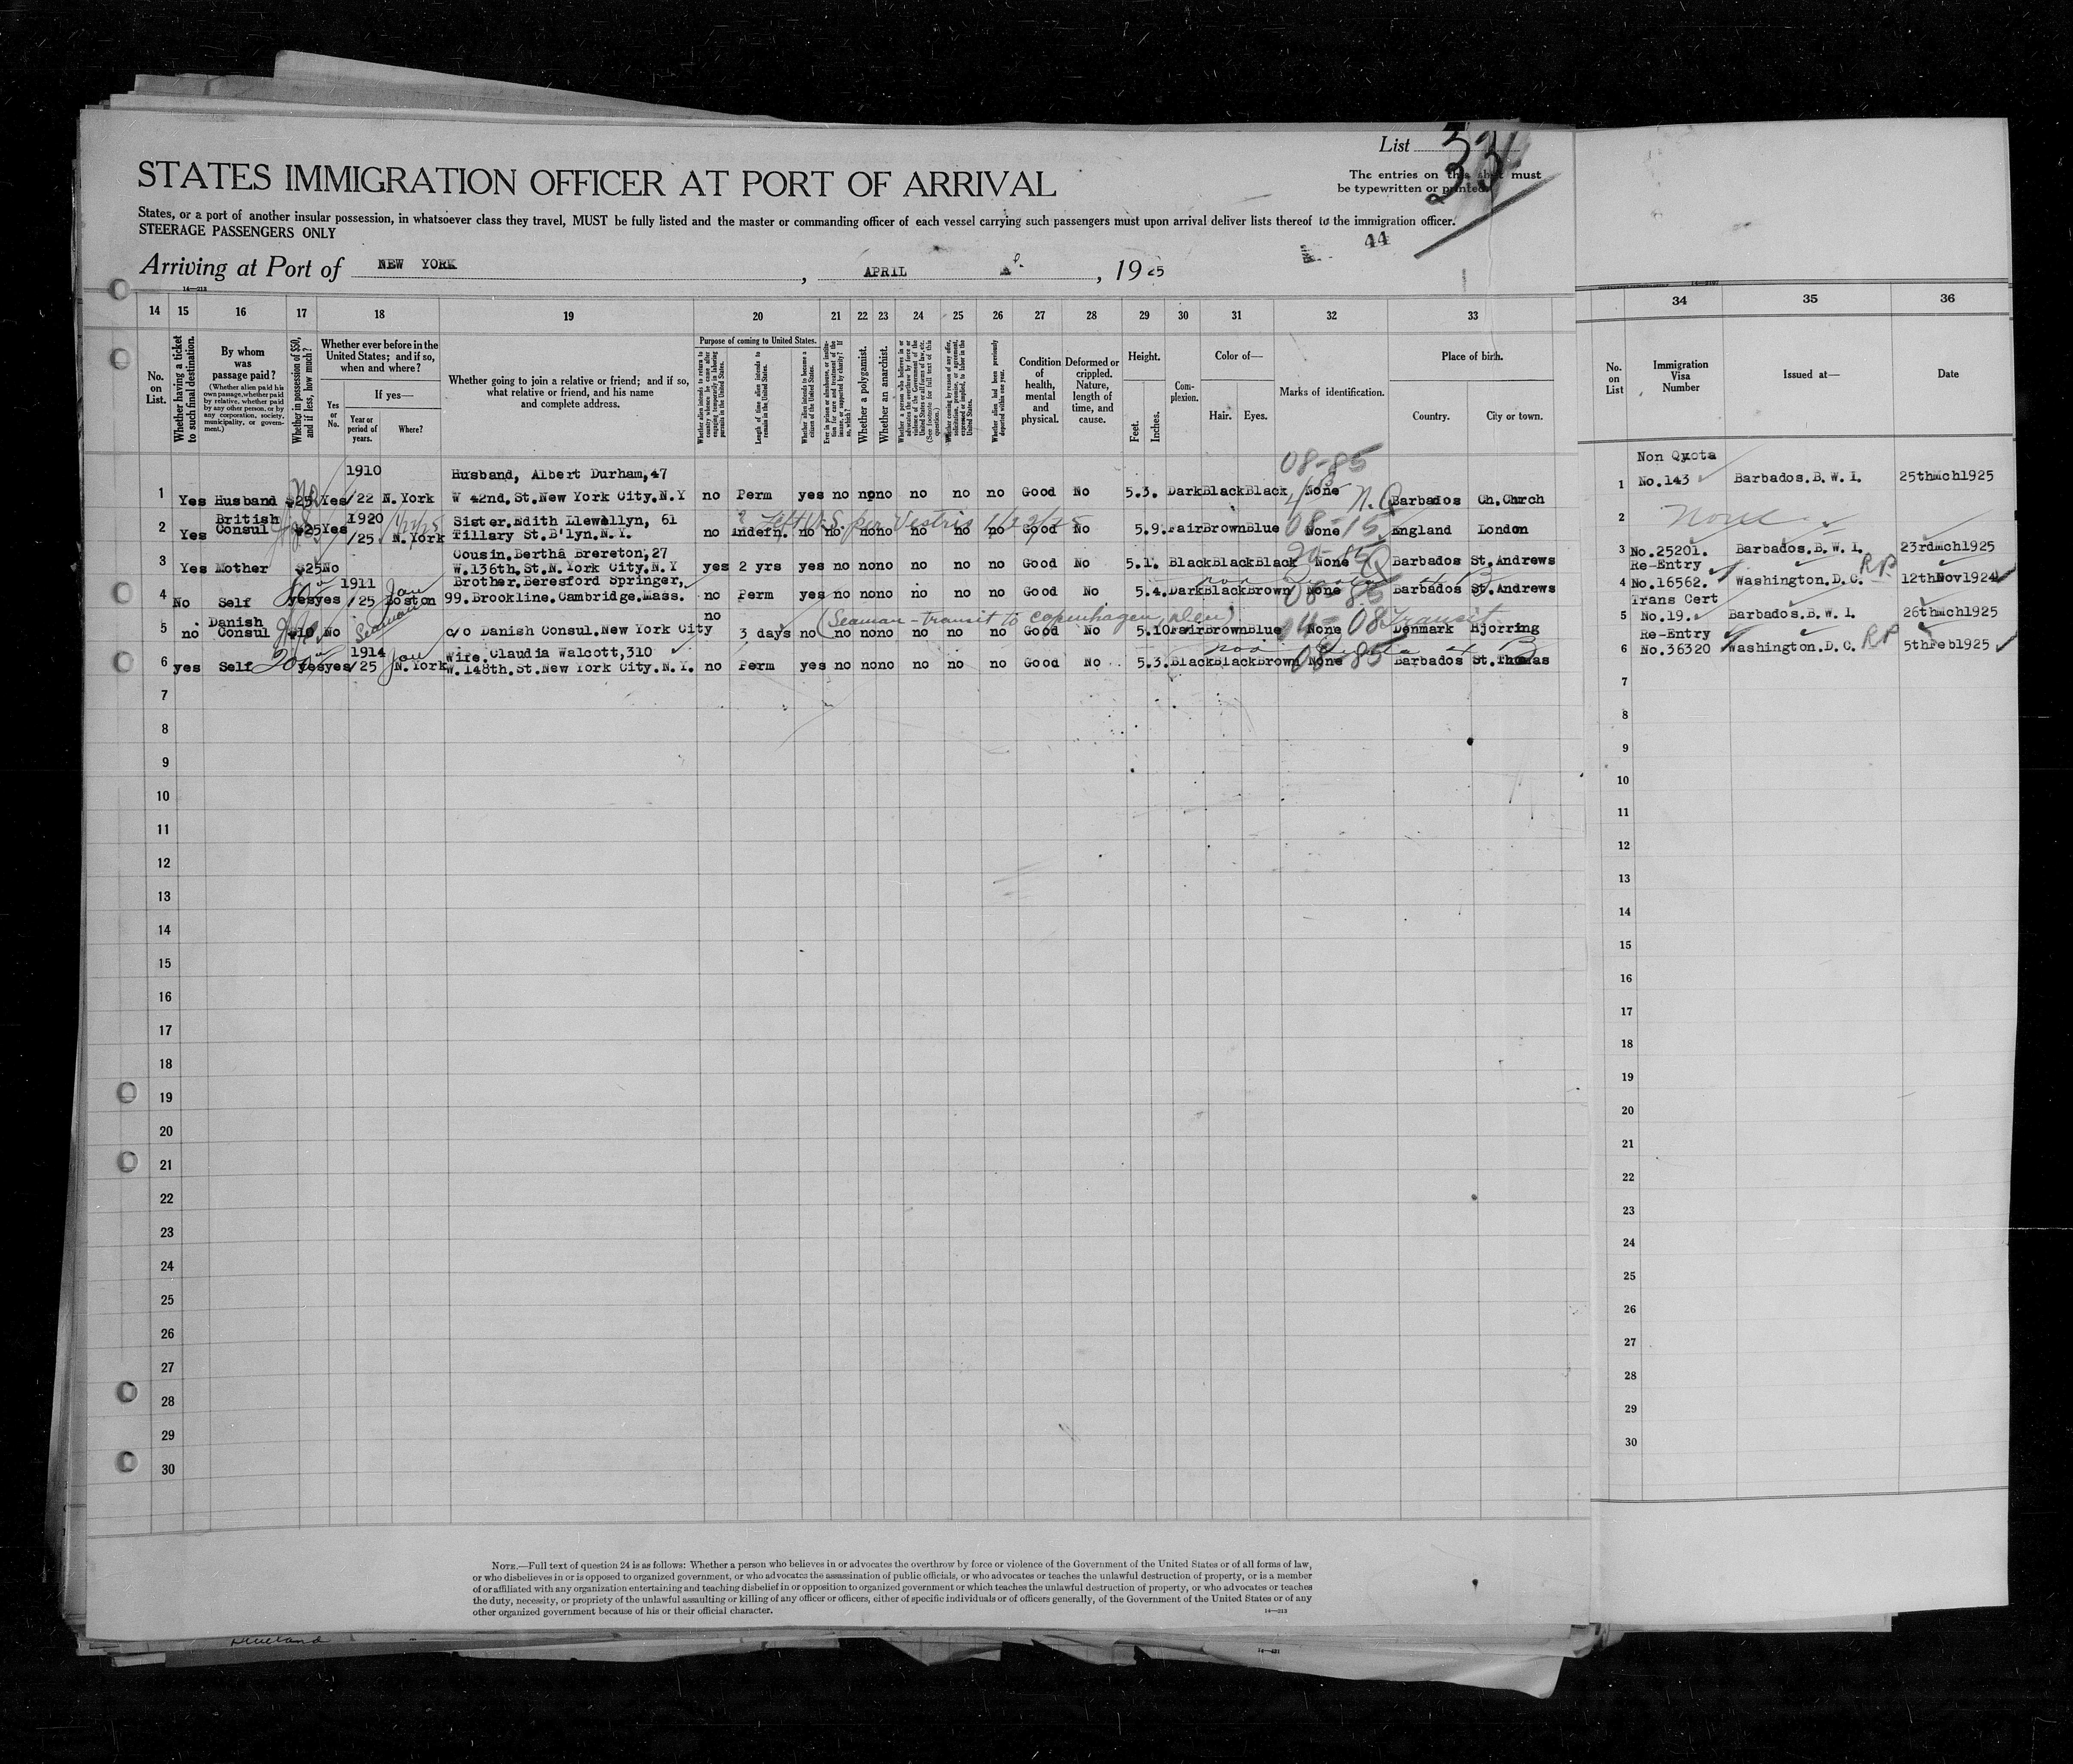 List 33
STATES IMMIGRATION OFFICER AT PORT OF ARRIVAL
The entries on this sheet must
be typewritten or printed.
States, or a port of another insular possession, in whatsoever class they travel, MUST be fully listed and the master or commanding officer of each vessel carrying such passengers must upon arrival deliver lists thereof to the immigration officer.
STEERAGE PASSENGERS ONLY
44
Arriving at Port of NEW YORK , APRIL , 1925
14—213
14 15 16 17 18 19 20 21 22 23 24 25 26 27 28 29 30 31 32 33 34 35 36
No. on List.
Whether having a ticket to such final destination.
By whom was passage paid?
(Whether alien paid his own passage, whether paid by relative, whether paid by any other person, or by any corporation, society, municipality, or government.)
Whether in possession of $50, and if less, how much?
Whether ever before in the United States; and if so, when and where?
If yes—
Yes or No.
Year or period of years.
Where?
Whether going to join a relative or friend; and if so, what relative or friend, and his name and complete address.
Purpose of coming to United States.
Whether alien intends to return to country whence he came after engaging temporarily in laboring pursuits in the United States.
Length of time alien intends to remain in the United States.
Whether alien intends to become a citizen of the United States.
Whether a polygamist.
Whether an anarchist.
Condition of health, mental and physical.
Deformed or crippled. Nature, length of time, and cause.
Height.
Feet. Inches.
Complexion.
Color of—
Hair. Eyes.
Marks of identification.
Place of birth.
Country. City or town.
No. on List
Immigration Visa Number
Issued at—
Date
1910 Husband, Albert Durham,47 08-85 Non Quota
1 Yes Husband $25 Yes /22 N.York W 42nd.St.New York City.N.Y no Perm yes no no no no no no Good No 5.3. Dark Black Black None N.Q Barbados Ch.Chrch 1 No.143 Barbados.B.W.I. 25thMch1925
British 1920 Sister.Edith Llewellyn, 61 Left U.S. per Vestris
2 Yes Consul $25 Yes /25 N.York Tillary St.B'lyn.N.Y. no Indefn. no no no no no no no Good No 5.9. Fair Brown Blue 08-15 None England London 2 None
Cousin.Bertha Brereton,27
3 Yes Mother $25 No W.136th.St.N.York City.N.Y yes 2 yrs yes no no no no no no Good No 5.1. Black Black Black None Barbados St.Andrews 3 No.25201. Barbados.B.W.I. 23rdMch1925
1911 Jan Brother.Beresford Springer, Re-Entry RP
4 No Self yes yes /25 Boston 99.Brookline.Cambridge.Mass. no Perm yes no no no no no no Good No 5.4. Dark Black Brown 08-85 None Barbados St.Andrews 4 No.16562. Washington.D.C. 12thNov1924
Danish Seaman no (Seaman-transit to copenhagen, Den) Trans Cert
5 no Consul $10 No c/o Danish Consul.New York City 3 days no no no no no no no Good No 5.10 Fair Brown Blue 04-08 None Transit Denmark Hjorring 5 No.19. Barbados.B.W.I. 26thMch1925
1914 Jan Wife.Claudia Walcott,310 Non Quota 4 B Re-Entry RP
6 yes Self 200 yes yes /25 N.York W.148th.St.New York City.N.Y. no Perm yes no no no no no no Good No 5.3. Black Black Brown 08-85 None Barbados St.Thomas 6 No.36320 Washington.D.C. 5thFeb1925
7 7
8 8
9 9
10 10
11 11
12 12
13 13
14 14
15 15
16 16
17 17
18 18
19 19
20 20
21 21
22 22
23 23
24 24
25 25
26 26
27 27
28 28
29 29
30 30
NOTE.—Full text of question 24 is as follows: Whether a person who believes in or advocates the overthrow by force or violence of the Government of the United States or of all forms of law,
or who disbelieves in or is opposed to organized government, or who advocates the assassination of public officials, or who advocates or teaches the unlawful destruction of property, or is a member
of or affiliated with any organization entertaining and teaching disbelief in or opposition to organized government or which teaches the unlawful destruction of property, or who advocates or teaches
the duty, necessity, or propriety of the unlawful assaulting or killing of any officer or officers, either of specific individuals or of officers generally, of the Government of the United States or of any
other organized government because of his or their official character.
14—213